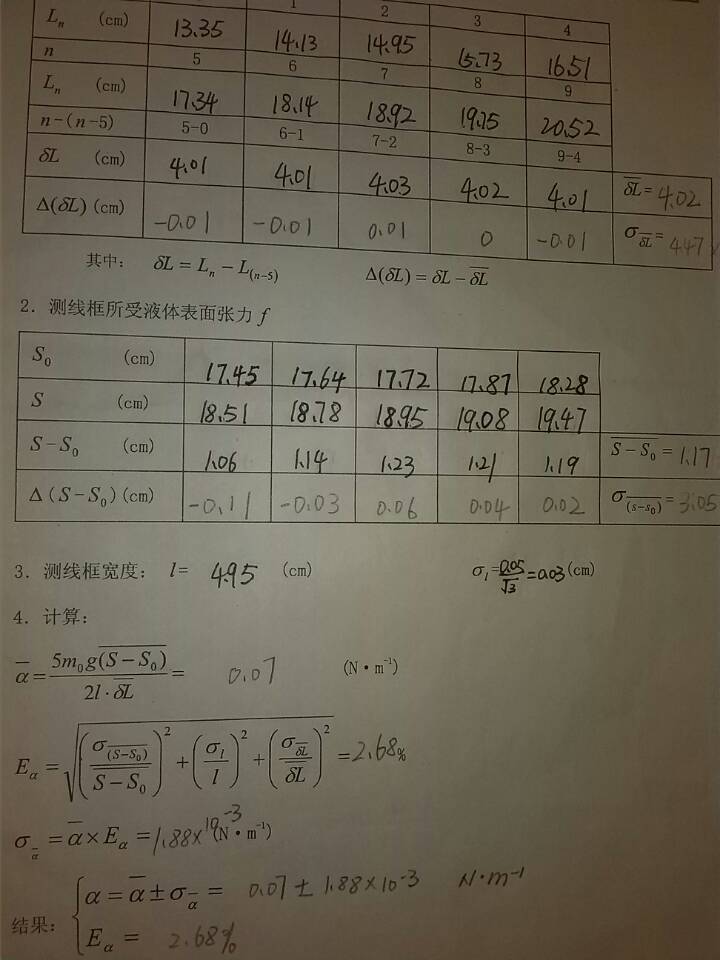 1 2 3 4
Lₙ (cm) 13.35 14.13 14.95 15.73 16.51
n 5 6 7 8 9
Lₙ (cm) 17.34 18.14 18.92 19.75 20.52
n-(n-5) 5-0 6-1 7-2 8-3 9-4
δL (cm) 4.01 4.01 4.03 4.02 4.01 δL̅ = 4.02
Δ(δL)(cm) -0.01 -0.01 0.01 0 -0.01 σ_δL̅ = 4.47
其中: δL = Lₙ - L₍ₙ₋₅₎ Δ(δL) = δL - δL̅
2. 测线框所受液体表面张力 f
S₀ (cm) 17.45 17.64 17.72 17.87 18.28
S (cm) 18.51 18.78 18.95 19.08 19.47
S-S₀ (cm) 1.06 1.14 1.23 1.21 1.19 \overline{S-S₀} = 1.17
Δ(S-S₀)(cm) -0.11 -0.03 0.06 0.04 0.02 σ_{\overline{(s-s₀)}} = 3.05
3. 测线框宽度: l= 4.95 (cm) σ_l = 0.05/√3 = 0.03 (cm)
4. 计算:
\overline{α} = 5m₀g(\overline{S-S₀}) / 2l·\overline{δL} = 0.07 (N·m⁻¹)
E_α = √((σ_{\overline{(S-S₀)}}/\overline{S-S₀})² + (σ_l/l)² + (σ_{\overline{δL}}/\overline{δL})²) = 2.68%
σ_{\overline{α}} = \overline{α}×E_α = 1.88×10⁻³ (N·m⁻¹)
结果: α = \overline{α} ± σ_{\overline{α}} = 0.07 ± 1.88×10⁻³ N·m⁻¹
E_α = 2.68%